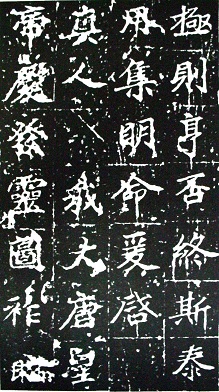 極則亨否終斯泰
用集明命爰啓
真人 我大唐皇
帝慶發靈圖祚